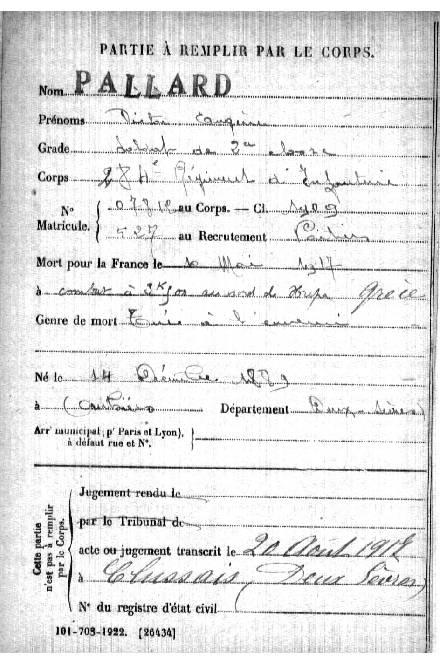 PARTIE À REMPLIR PAR LE CORPS.
Nom PALLARD
Prénoms Victor Eugène
Grade soldat de 2e classe
Corps 284e Régiment d'Infanterie
N° Matricule. { 07812 au Corps. — Cl. 1909
{ 527 au Recrutement Poitiers
Mort pour la France le Mai 1917
à combat à au nord de Grèce
Genre de mort Tué à l'ennemi
Né le 14 Décembre 1889
à Département Deux-Sèvres
Arr^t municipal (p^r Paris et Lyon), à défaut rue et N°.
Jugement rendu le
par le Tribunal de
acte ou jugement transcrit le 20 Août 1917
à Clussais, Deux Sèvres
N° du registre d'état civil
Cette partie n'est pas à remplir par le Corps.
101-708-1922. [26434]